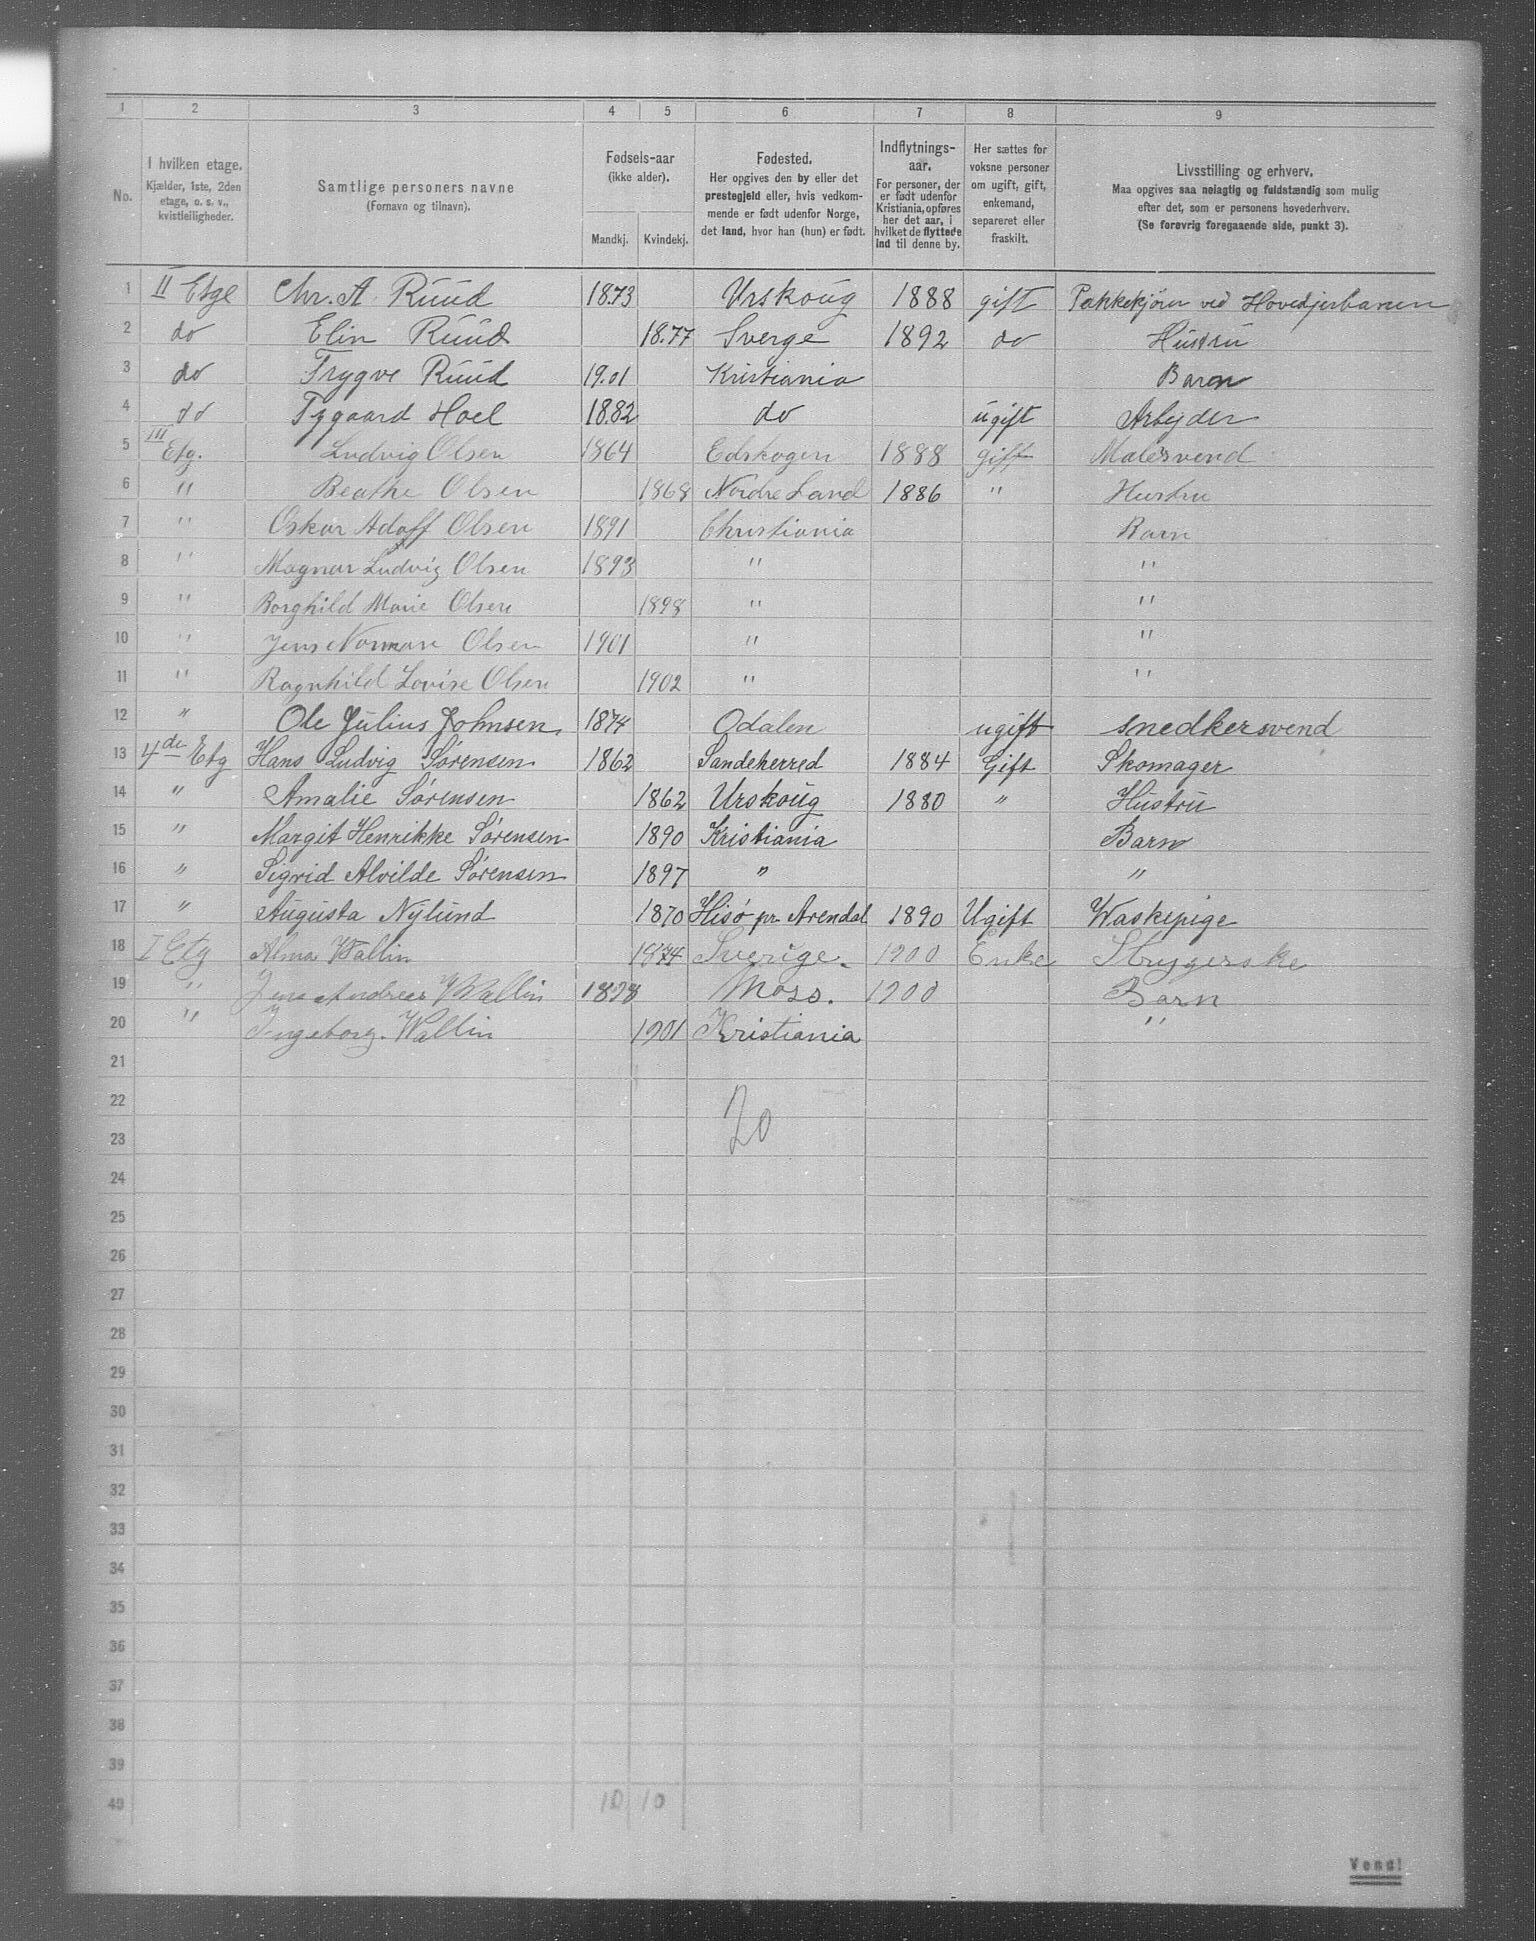 1 2 3 4 5 6 7 8 9
No. I hvilken etage. Kjælder, 1ste, 2den etage, o. s. v., kvistleiligheder. Samtlige personers navne (Fornavn og tilnavn). Fødsels-aar (ikke alder). Mandkj. Kvindekj. Fødested. Her opgives den by eller det prestegjeld eller, hvis vedkommende er født udenfor Norge, det land, hvor han (hun) er født. Indflytnings-aar. For personer, der er født udenfor Kristiania, opføres her det aar, i hvilket de flyttede ind til denne by. Her sættes for voksne personer om ugift, gift, enkemand, separeret eller fraskilt. Livsstilling og erhverv. Maa opgives saa nøiagtig og fuldstændig som mulig efter det, som er personens hovederhverv. (Se forøvrig foregaaende side, punkt 3).
1 II Etge Chr. A. Ruud 18.73 Urskoug 1888 gift Pakkekjører ved Hovedjerbanen
2 do Elin Ruud 18.77 Sverge 1892 do Hustru
3 do Trygve Ruud 19.01 Kristiania Barn
4 do Tygaard Hoel 18.82 do ugift Arbyder
5 III Etg. Ludvig Olsen 1864 Edskogen 1888 gift Malersvend
6 " Beathe Olsen 1868 Nordre Land 1886 " Hustru
7 " Oskar Adolf Olsen 1891 Christiania Barn
8 " Magnar Ludvig Olsen 1893 " "
9 " Borghild Marie Olsen 1898 " "
10 " Jens Norman Olsen 1901 " "
11 " Ragnhild Lovise Olsen 1902 " "
12 " Ole Julius Johnsen 1874 Odalen ugift snedkersvend
13 4de Etg Hans Ludvig Sørensen 1862 Sandeherred 1884 Gift Skomager
14 " Amalie Sørensen 1862 Urskoug 1880 " Hustru
15 " Margit Henrikke Sørensen 1890 Kristiania Barn
16 " Sigrid Alvilde Sørensen 1897 " "
17 " Augusta Nylund 1870 Hisø pr Arendal 1890 Ugift Waskepige
18 I Etg Alma Wallin 1874 Sverige. 1900 Enke Strygerske
19 " Jens Andreas Wallin 1898 Moss. 1900 Barn
20 " Ingeborg. Wallin 1901 Kristiania "
21
22
20
23
24
25
26
27
28
29
30
31
32
33
34
35
36
37
38
39
40 10 10
Vend!